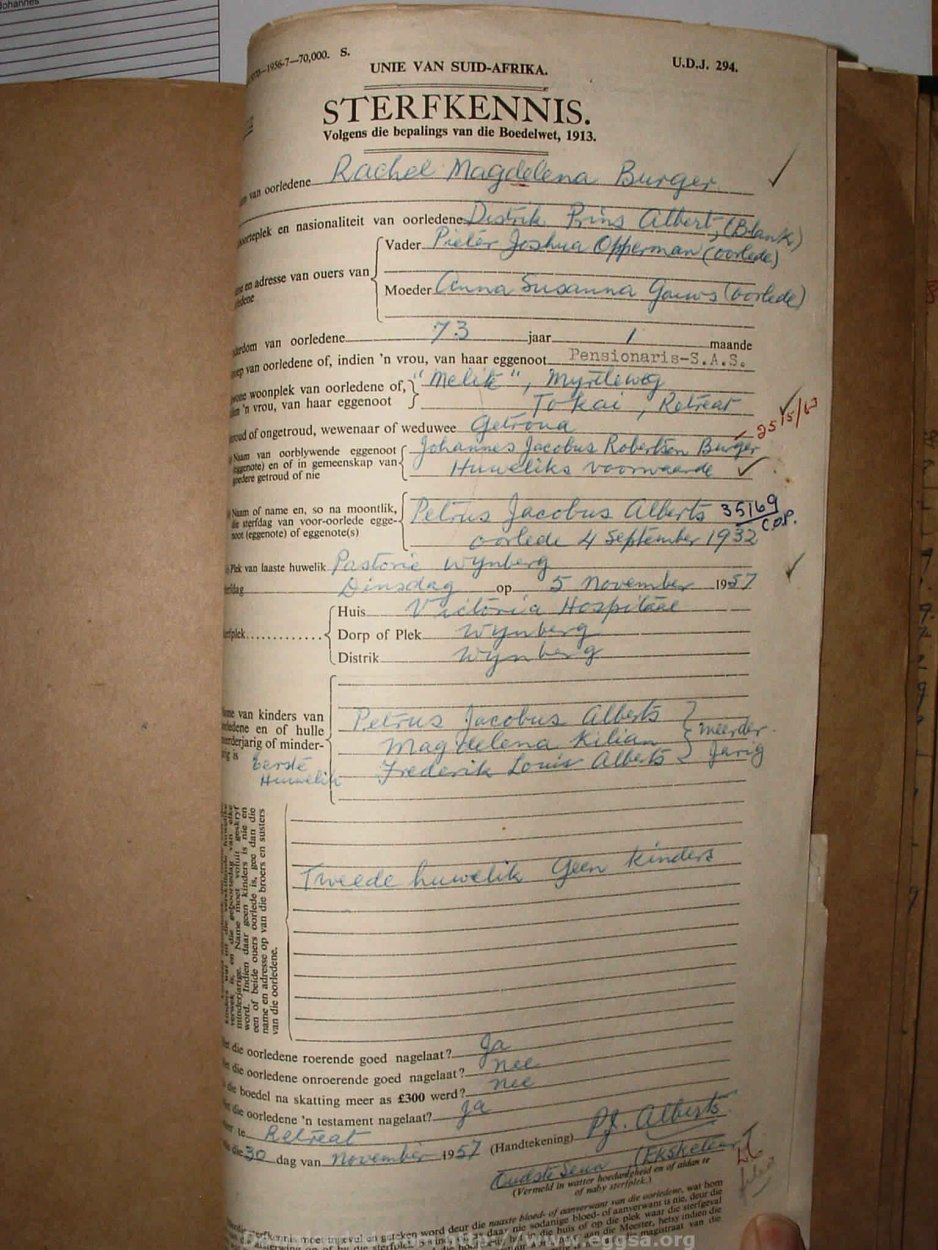 Johannes
1956-7—70,000. S.
U.D.J. 294.
UNIE VAN SUID-AFRIKA.
STERFKENNIS.
Volgens die bepalings van die Boedelwet, 1913.
van oorledene Rachel Magdelena Burger
en nasionaliteit van oorledene Distrik Prins Albert, (Blank)
en adresse van ouers van
Vader Pieter Joshua Opperman (oorlede)
Moeder Anna Susanna Gouws (oorlede)
van oorledene 73 jaar 1 maande
van oorledene of, indien 'n vrou, van haar eggenoot Pensionaris-S.A.S.
woonplek van oorledene of,
'n vrou, van haar eggenoot
"Melite", Myrtleweg
Tokai, Retreat
of ongetroud, wewenaar of weduwee Getroud
25/5/63
Naam van oorblywende eggenoot
(eggenote) en of in gemeenskap van
goedere getroud of nie
Johannes Jacobus Robertson Burger
Huweliks voorwaarde
Naam of name en, so na moontlik,
die sterfdag van voor-oorlede egge-
noot (eggenote) of eggenote(s)
Petrus Jacobus Alberts 35169
C.O.P.
oorlede 4 September 1932
Plek van laaste huwelik Pastorie Wynberg
Dinsdag op 5 November 1957
Huis Victoria Hospitaal
Dorp of Plek Wynberg
Distrik Wynberg
van kinders van
en of hulle
of minder-
is
Eerste
Huwelik
Petrus Jacobus Alberts
Magdelena Kilian
Frederik Louis Alberts
meerder
jarig
minderjarige. Name moet voluit geskryf
word. Indien daar geen kinders is nie en
een of beide ouers oorlede is, gee dan die
name en adresse op van die broers en susters
van die oorledene.
Tweede huwelik Geen kinders
die oorledene roerende goed nagelaat? Ja
die oorledene onroerende goed nagelaat? Nee
die boedel na skatting meer as £300 werd? Nee
die oorledene 'n testament nagelaat? Ja
te Retreat
die 30 dag van November 1957 (Handtekening) P.J. Alberts
Oudste Seun, (Eksekuteur)
(Vermeld in watter hoedanigheid en of aldan te
of naby sterfplek.)
moet ingevul en geteken word deur die naaste bloed- of aanverwant van die oorledene, wat hom
http://www.eggsa.org